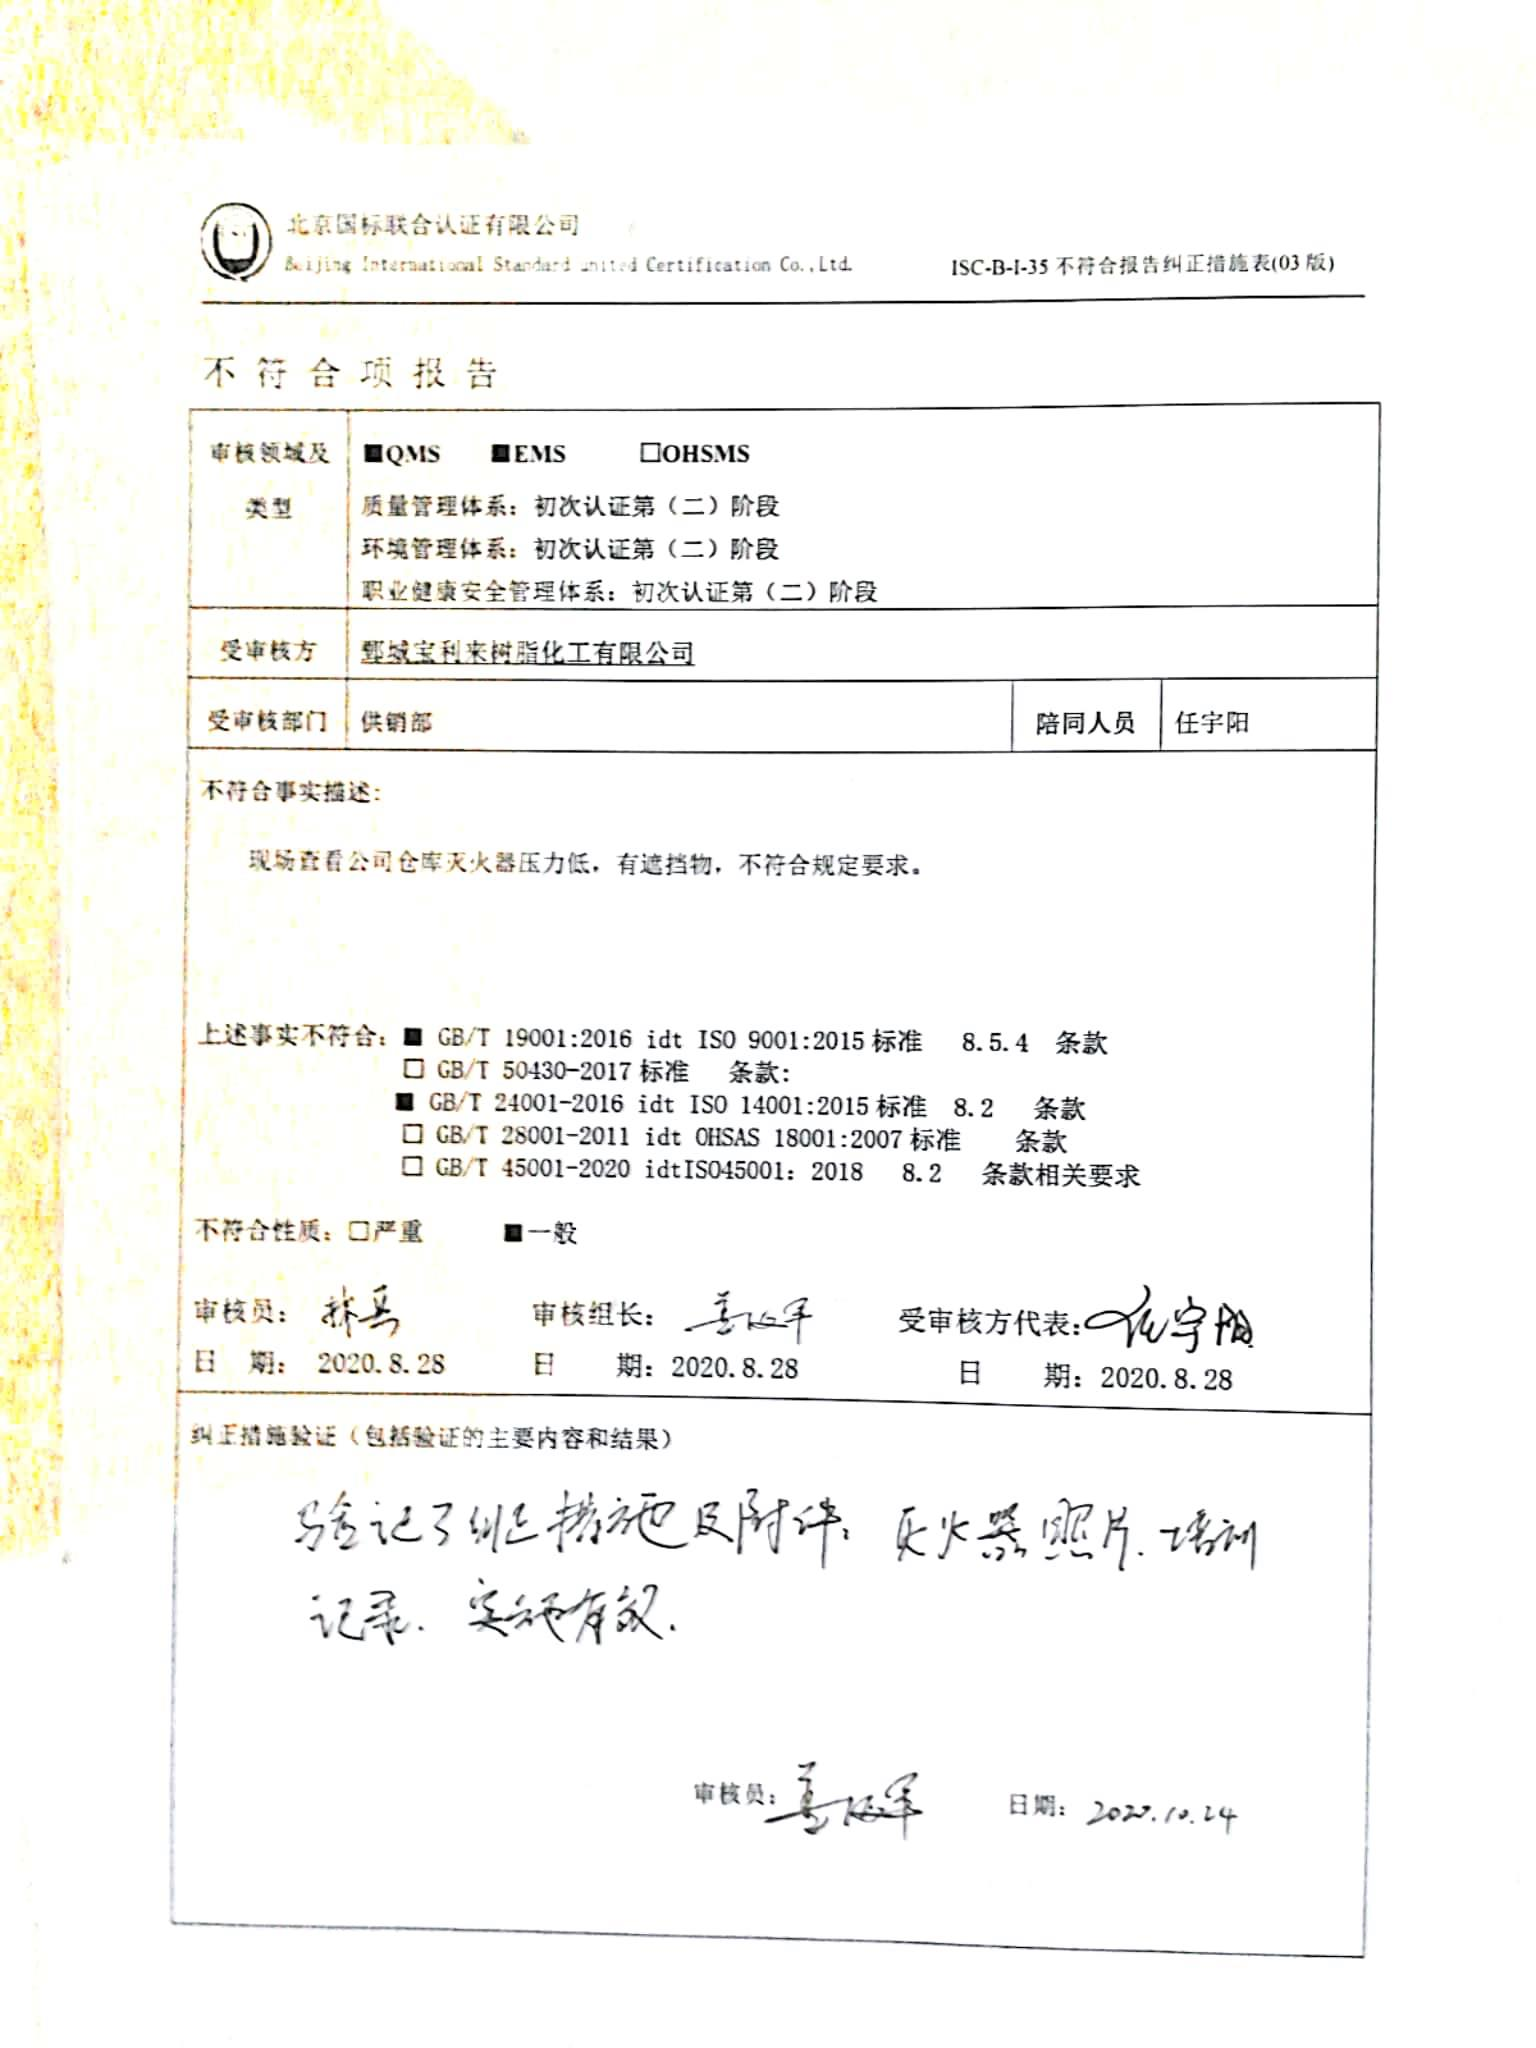 北京国标联合认证有限公司
Beijing International Standard united Certification Co.,Ltd.
ISC-B-I-35 不符合报告纠正措施表(03 版)
不符合项报告
审核领域及类型
■QMS ■EMS □OHSMS
质量管理体系：初次认证第（二）阶段
环境管理体系：初次认证第（二）阶段
职业健康安全管理体系：初次认证第（二）阶段
受审核方 鄄城宝利来树脂化工有限公司
受审核部门 供销部 陪同人员 任宇阳
不符合事实描述：
现场查看公司仓库灭火器压力低，有遮挡物，不符合规定要求。
上述事实不符合：■ GB/T 19001:2016 idt ISO 9001:2015 标准 8.5.4 条款
□ GB/T 50430-2017 标准 条款：
■ GB/T 24001-2016 idt ISO 14001:2015 标准 8.2 条款
□ GB/T 28001-2011 idt OHSAS 18001:2007 标准 条款
□ GB/T 45001-2020 idtISO45001：2018 8.2 条款相关要求
不符合性质：□严重 ■一般
审核员： 审核组长： 受审核方代表：任宇阳
日 期： 2020.8.28 日 期：2020.8.28 日 期：2020.8.28
纠正措施验证（包括验证的主要内容和结果）
验记了纠正措施及附件：灭火器照片、培训
记录、实施有效.
审核员： 日期：2020.10.24